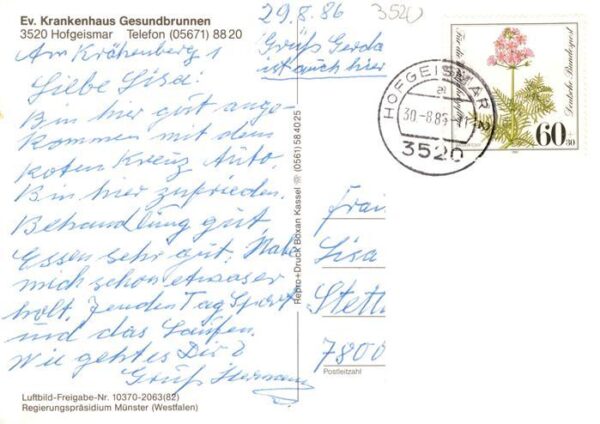 Ev. Krankenhaus Gesundbrunnen
3520 Hofgeismar Telefon (05671) 88 20
Am Krähenberg 1
Liebe Lisa:
Bin hier gut ange-
kommen mit dem
Roten Kreuz Auto.
Bin hier zufrieden.
Behandlung gut,
Essen sehr gut. Habe
mich schon etwas er
holt. Jenden Tag Sport
und das Laufen.
Wie gehts Dir?
Gruß Hermann
Luftbild-Freigabe-Nr. 10370-2063(82)
Regierungspräsidium Münster (Westfalen)
29.8.86
3520
Gruß Gerda
ist auch hier
Repro+Druck Boxan Kassel (0561) 58 40 25
HOFGEISMAR 2
al
30.-8.86
3520
Deutsche Bundespost
60+30
Lisa
7800
Postleitzahl